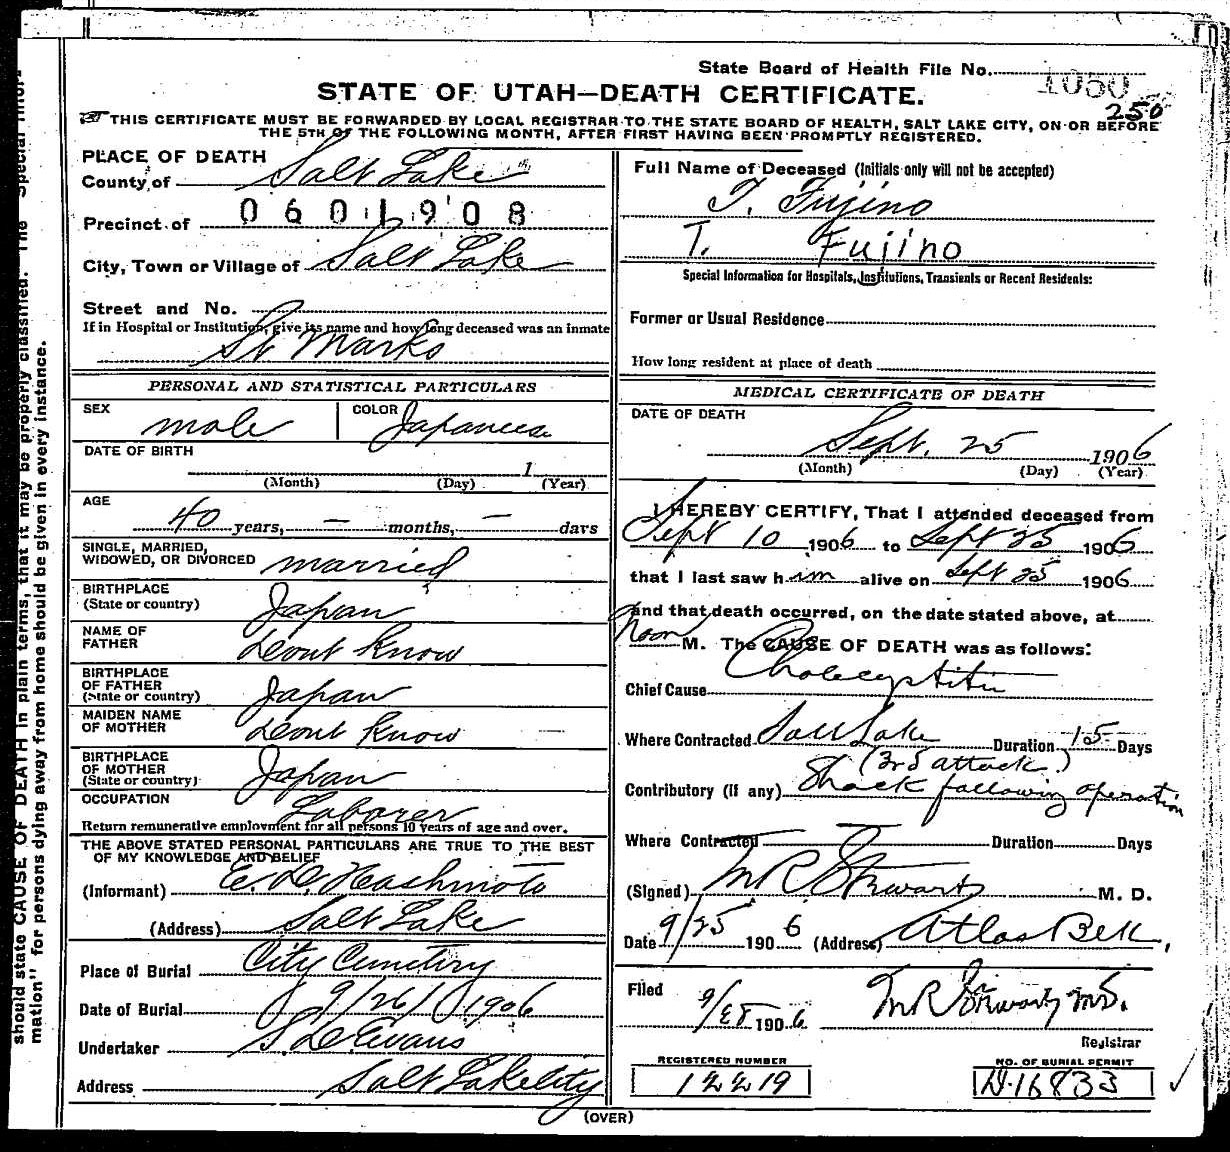 State Board of Health File No. 1050
STATE OF UTAH—DEATH CERTIFICATE.
250
THIS CERTIFICATE MUST BE FORWARDED BY LOCAL REGISTRAR TO THE STATE BOARD OF HEALTH, SALT LAKE CITY, ON OR BEFORE
THE 5TH OF THE FOLLOWING MONTH, AFTER FIRST HAVING BEEN PROMPTLY REGISTERED.
PLACE OF DEATH
County of Salt Lake
Precinct of 0601908
City, Town or Village of Salt Lake
Street and No.
If in Hospital or Institution, give its name and how long deceased was an inmate
St Marks
PERSONAL AND STATISTICAL PARTICULARS
SEX male COLOR Japanese
DATE OF BIRTH
1
(Month) (Day) (Year)
AGE
40 years, — months, — days
SINGLE, MARRIED,
WIDOWED, OR DIVORCED married
BIRTHPLACE
(State or country) Japan
NAME OF
FATHER Dont Know
BIRTHPLACE
OF FATHER
(State or country) Japan
MAIDEN NAME
OF MOTHER Dont Know
BIRTHPLACE
OF MOTHER
(State or country) Japan
OCCUPATION Laborer
Return remunerative employment for all persons 10 years of age and over.
THE ABOVE STATED PERSONAL PARTICULARS ARE TRUE TO THE BEST
OF MY KNOWLEDGE AND BELIEF
(Informant) E. D. Hashimoto
(Address) Salt Lake
Place of Burial City Cemetery
Date of Burial 9/26/1906
Undertaker S. D. Evans
Address Salt Lake City
Full Name of Deceased (Initials only will not be accepted)
T. Fujino
T. Fujino
Special Information for Hospitals, Institutions, Transients or Recent Residents:
Former or Usual Residence
How long resident at place of death
MEDICAL CERTIFICATE OF DEATH
DATE OF DEATH
Sept. 25 1906
(Month) (Day) (Year)
I HEREBY CERTIFY, That I attended deceased from
Sept 10 1906 to Sept 25 1906
that I last saw him alive on Sept 25 1906
and that death occurred, on the date stated above, at
Noon M. The CAUSE OF DEATH was as follows:
Chief Cause Cholecystitis
Where Contracted Salt Lake Duration 15 Days
(3rd attack)
Contributory (if any) Shock following operation
Where Contracted Duration Days
(Signed) M R Stewart M. D.
Date 9/25 1906 (Address) Atlas Blk.
Filed
9/28 1906 M R Stewart M.D.
Registrar
REGISTERED NUMBER NO. OF BURIAL PERMIT
12219 D-16833
(OVER)
should state CAUSE OF DEATH in plain terms, that it may be properly classified. The "Special Infor-
mation" for persons dying away from home should be given in every instance.